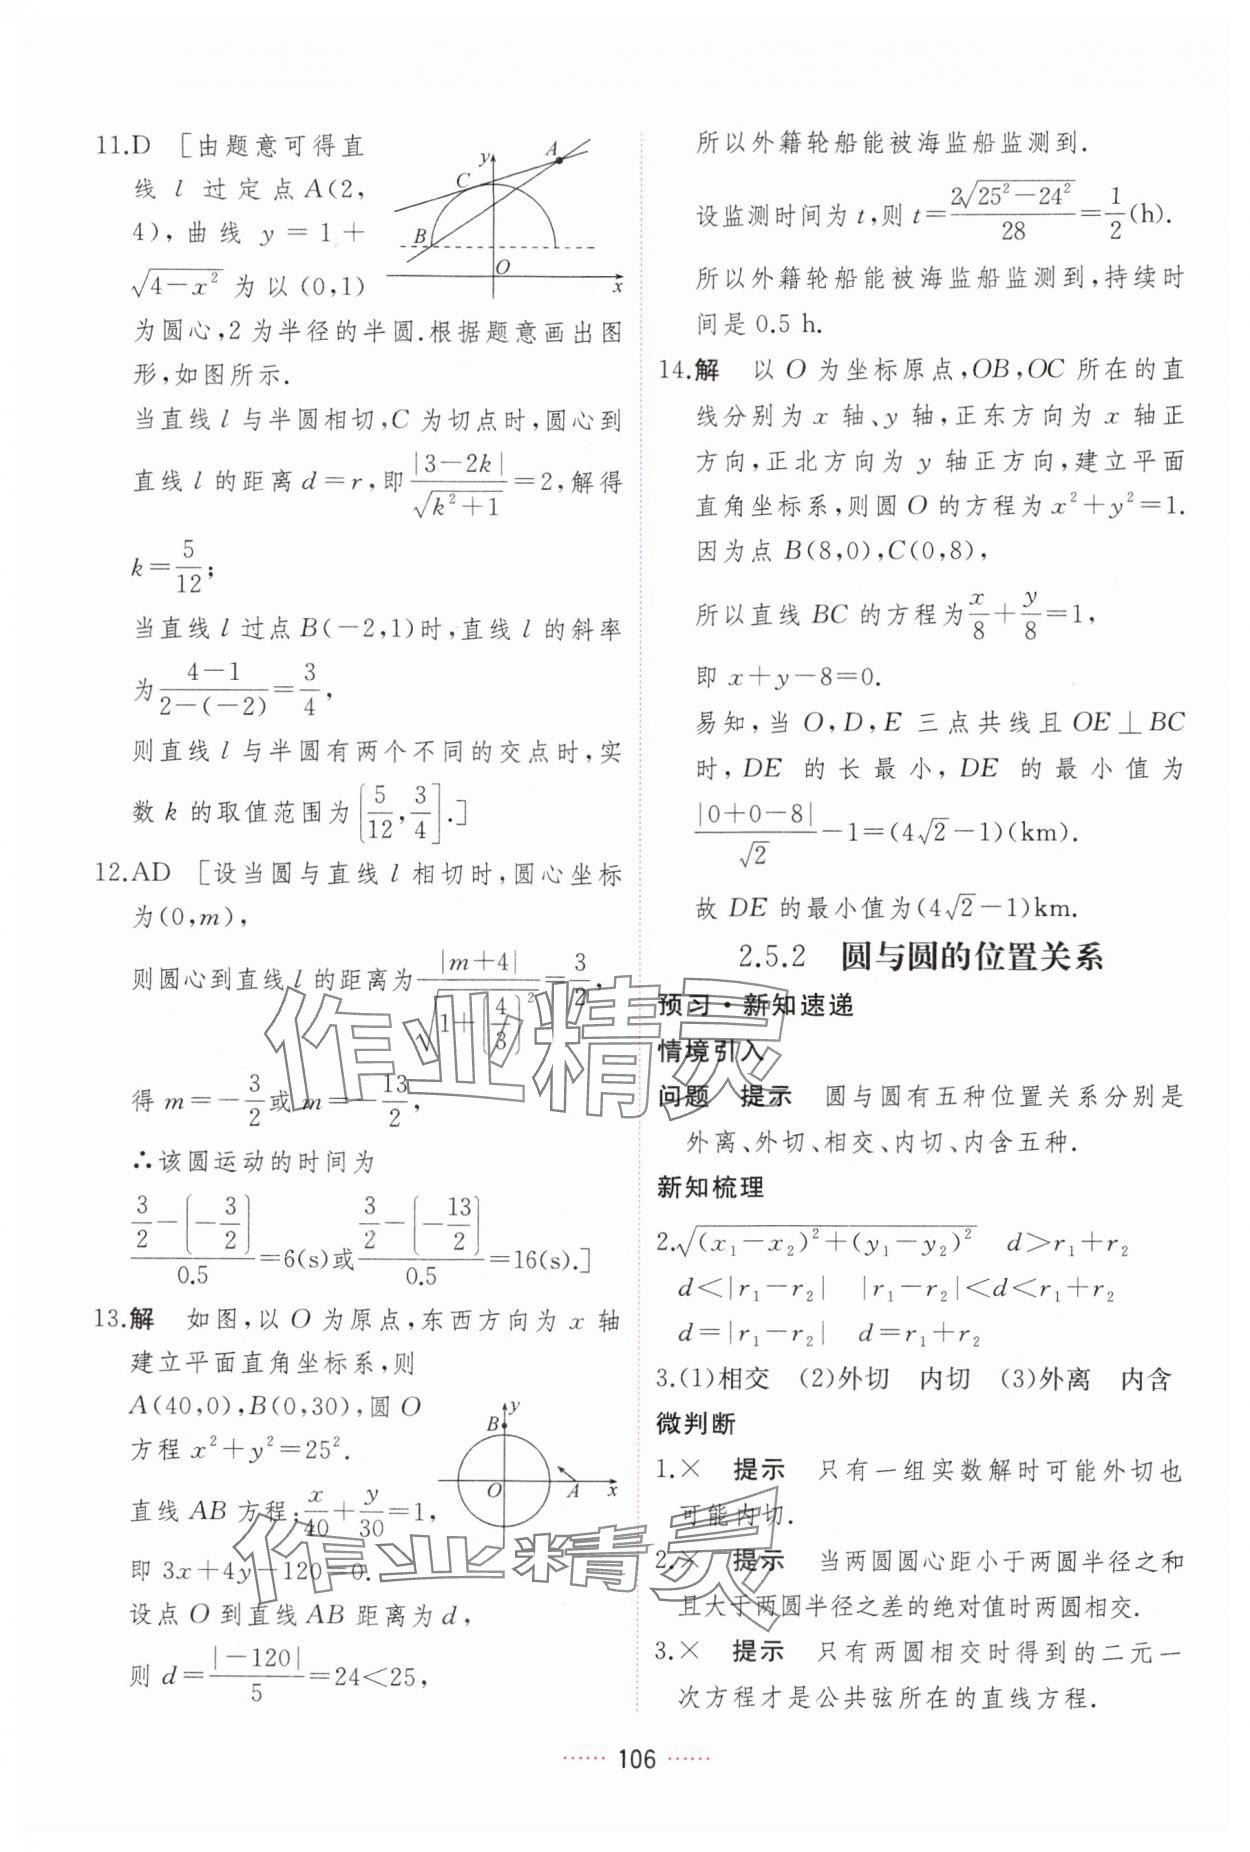 11.D [由题意可得直
线 l 过定点A(2,
4),曲线 y=1+
√(4-x²) 为以(0,1)
为圆心,2为半径的半圆.根据题意画出图
形,如图所示.
y
A
C
B
O
x
当直线 l 与半圆相切,C 为切点时,圆心到
直线 l 的距离 d=r,即|3-2k|/√(k²+1)=2,解得
k=5/12;
当直线 l 过点B(-2,1)时,直线 l 的斜率
为(4-1)/(2-(-2))=3/4,
则直线 l 与半圆有两个不同的交点时,实
数 k 的取值范围为(5/12,3/4].]
12.AD [设当圆与直线 l 相切时,圆心坐标
为(0,m),
则圆心到直线 l 的距离为|m+4|/√(1+(4/3)²)=3/2,
得 m=-3/2或 m=-13/2,
∴该圆运动的时间为
(3/2-(-3/2))/0.5=6(s)或(3/2-(-13/2))/0.5=16(s).]
13.解 如图,以 O 为原点,东西方向为 x 轴
建立平面直角坐标系,则
A(40,0),B(0,30),圆 O
方程 x²+y²=25².
直线 AB 方程:x/40+y/30=1,
即 3x+4y-120=0.
y
B
O
A
x
设点 O 到直线 AB 距离为 d,
则 d=|-120|/5=24<25,
所以外籍轮船能被海监船监测到.
设监测时间为 t,则 t=2√(25²-24²)/28=1/2(h).
所以外籍轮船能被海监船监测到,持续时
间是 0.5 h.
14.解 以 O 为坐标原点,OB,OC 所在的直
线分别为 x 轴、y 轴,正东方向为 x 轴正
方向,正北方向为 y 轴正方向,建立平面
直角坐标系,则圆 O 的方程为 x²+y²=1.
因为点 B(8,0),C(0,8),
所以直线 BC 的方程为x/8+y/8=1,
即 x+y-8=0.
易知,当 O,D,E 三点共线且 OE⊥BC
时,DE 的长最小,DE 的最小值为
|0+0-8|/√2-1=(4√2-1)(km).
故 DE 的最小值为(4√2-1)km.
2.5.2 圆与圆的位置关系
预习·新知速递
情境引入
问题 提示 圆与圆有五种位置关系分别是
外离、外切、相交、内切、内含五种.
新知梳理
2.√((x₁-x₂)²+(y₁-y₂)²) d>r₁+r₂
d<|r₁-r₂| |r₁-r₂|<d<r₁+r₂
d=|r₁-r₂| d=r₁+r₂
3.(1)相交 (2)外切 内切 (3)外离 内含
微判断
1.× 提示 只有一组实数解时可能外切也
可能内切.
2.× 提示 当两圆圆心距小于两圆半径之和
且大于两圆半径之差的绝对值时两圆相交.
3.× 提示 只有两圆相交时得到的二元一
次方程才是公共弦所在的直线方程.
······ 106 ······
作业精灵
作业精灵